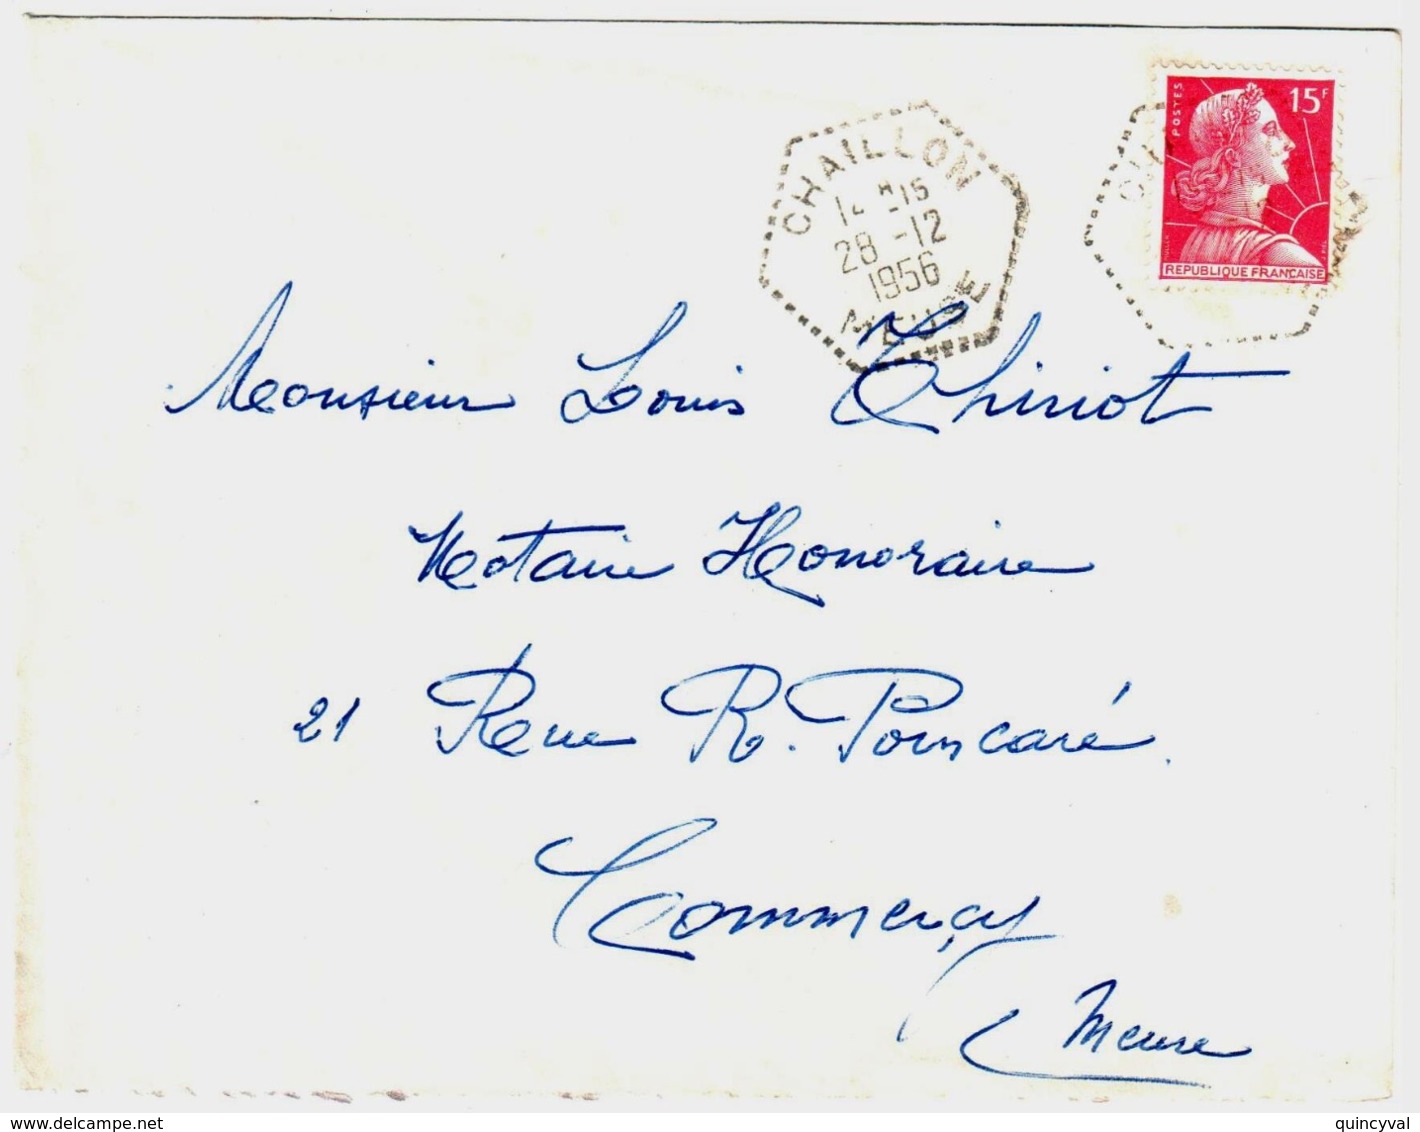 POSTES
15F
RÉPUBLIQUE FRANÇAISE
CHAILLON
28 -12
1956
MEUSE
Monsieur Louis Thiriot
Notaire Honoraire
21 Rue R. Poincaré.
Commercy
Meuse
www.delcampe.net
quincyval